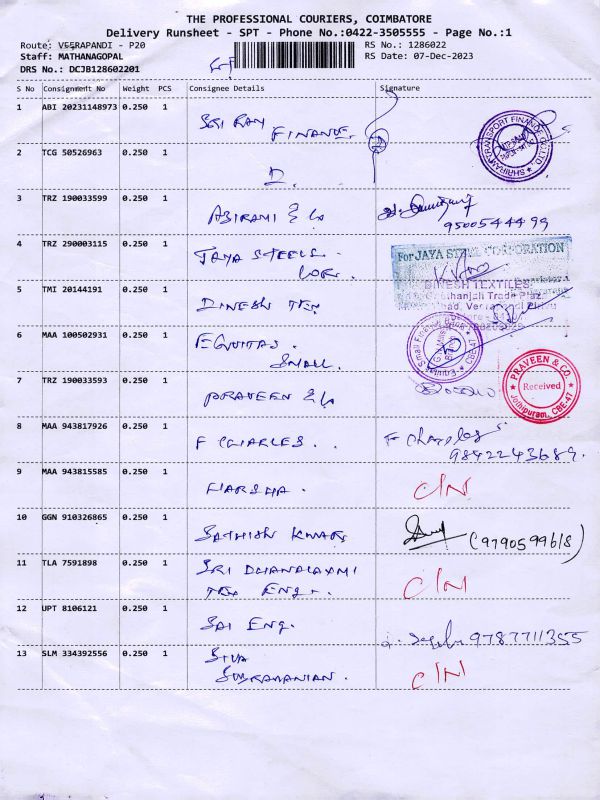 THE PROFESSIONAL COURIERS, COIMBATORE
Delivery Runsheet - SPT - Phone No.:0422-3505555 - Page No.:1
Route: VEERAPANDI - P20
RS No.: 1286022
Staff: MATHANAGOPAL
RS Date: 07-Dec-2023
DRS No.: DCJB128602201
S No Consignment No Weight PCS Consignee Details Signature
1 ABI 20231148973 0.250 1 SRI RAM
FINANCE.
SHRIRAM TRANSPORT FINANCE CO. LTD.
2 TCG 50526963 0.250 1
D.
3 TRZ 190033599 0.250 1 ABIRAMI & Co
9500544499
4 TRZ 290003115 0.250 1 JAYA STEELS
COR.
For JAYA STEEL CORPORATION
5 TMI 20144191 0.250 1 DINESH TEX
DINESH TEXTILES
6 MAA 100502931 0.250 1 EQUITAS.
SMALL.
Equitas Small Finance Bank
7 TRZ 190033593 0.250 1 PRAVEEN & Co
PRAVEEN & CO.
Received
Jothipuram, CBE-47
8 MAA 943817926 0.250 1 F CHARLES. F Charles
9842243689.
9 MAA 943815585 0.250 1 HARSHA. C/N
10 GGN 910326865 0.250 1 SATHISH KUMAR (9790599618)
11 TLA 7591898 0.250 1 SRI DHANALAXMI
TEX ENGR. C/N
12 UPT 8106121 0.250 1 SAI ENG. 9787711355
13 SLM 334392556 0.250 1 SIVA
SUBRAMANIAN. C/N